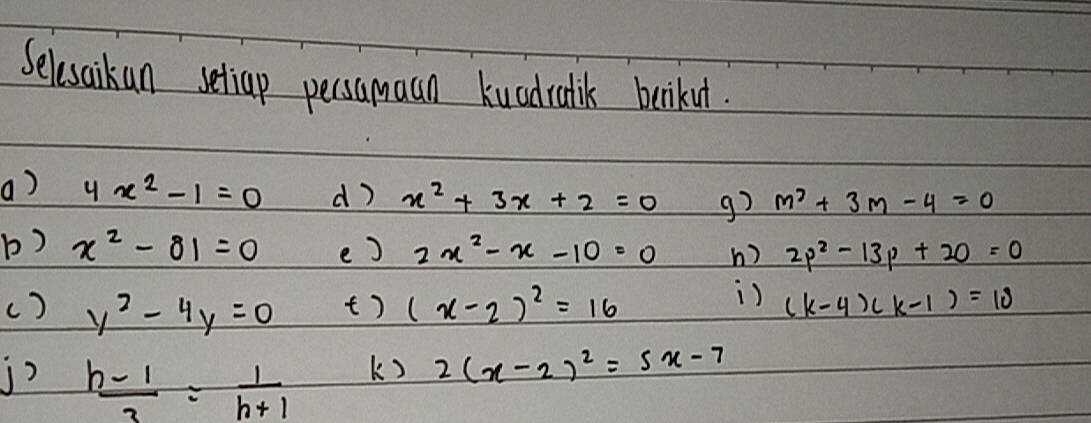 Selesaikan setiap persamaan kuadratik berikut.
a) 4x² - 1 = 0 d) x² + 3x + 2 = 0 g) m² + 3m - 4 = 0
b) x² - 81 = 0 e) 2x² - x - 10 = 0 h) 2p² - 13p + 20 = 0
c) y² - 4y = 0 f) (x - 2)² = 16 i) (k - 4)(k - 1) = 18
j) h - 1 / 3 = 1 / h + 1 k) 2(x - 2)² = 5x - 7